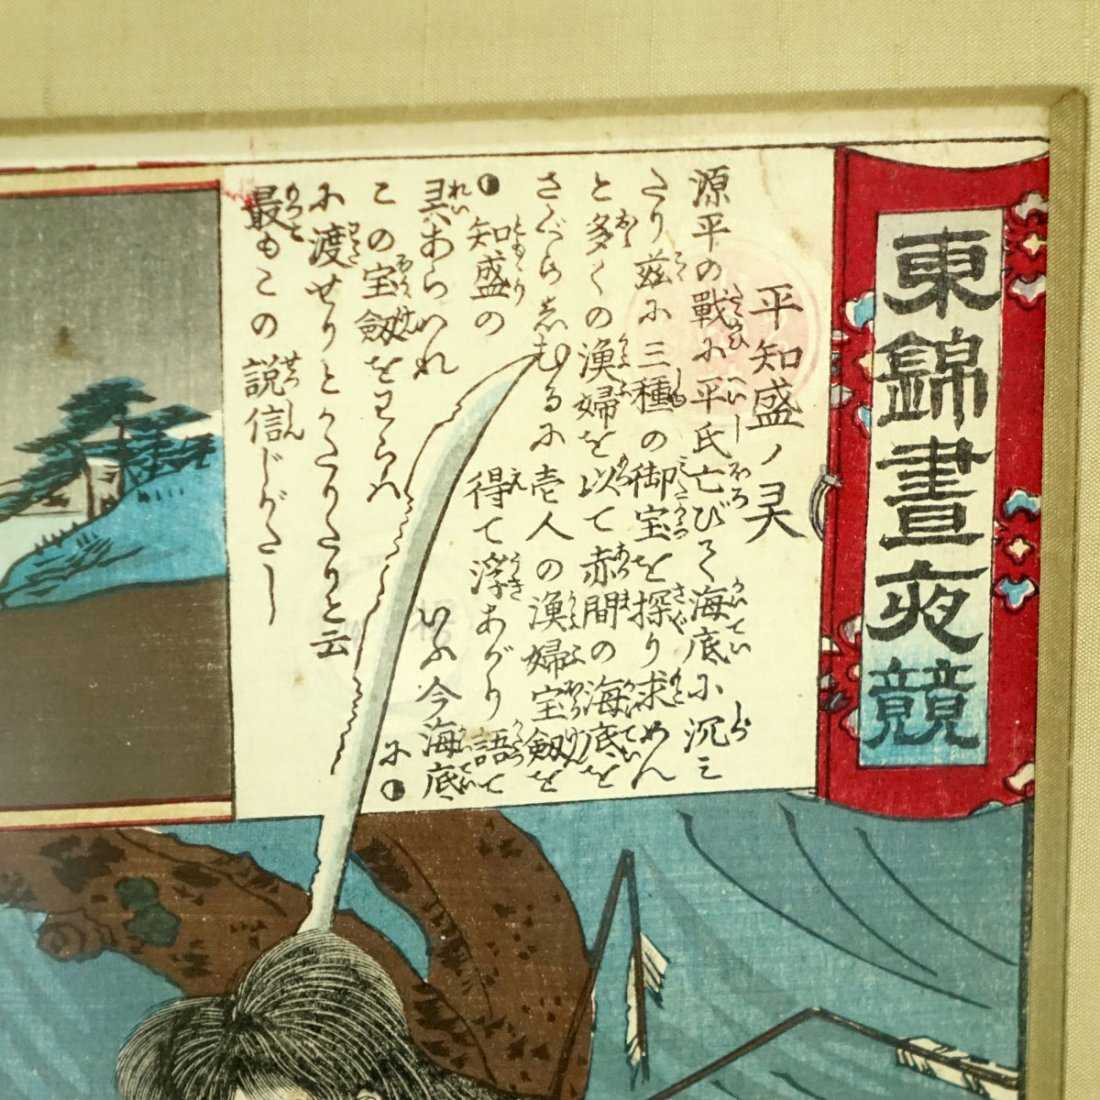 東錦晝夜競
平知盛ノ灵
源平の戰に平氏亡びて海底に沉み
たり茲に三種の御宝を探り求めん
と多くの漁婦を以て赤間の海底を
さぐらしむるに壱人の漁婦宝劔を
得て浮あがり語て
いふ今海底に
知盛の
灵あらハれ
この宝劔をわらハ
に渡せりとかたりたりと云
最もこの説信じがたし